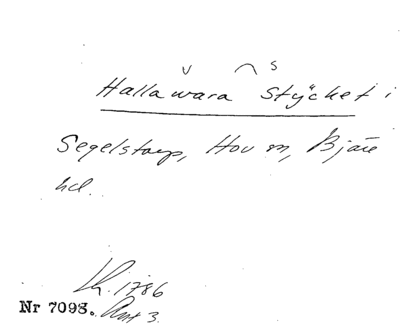 v s
Hallawara Stÿcket i
Segelstorp, Hov sn, Bjäre
hd.
Lh. 1786
Nr 7098. Akt 3.